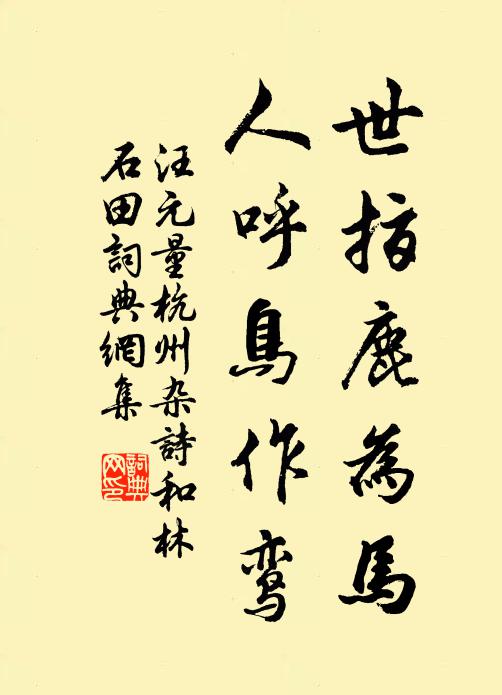 世指鹿為馬
人呼鳥作鸾
汪元量杭州杂詩和林
石田詞典網集
詞典
网印